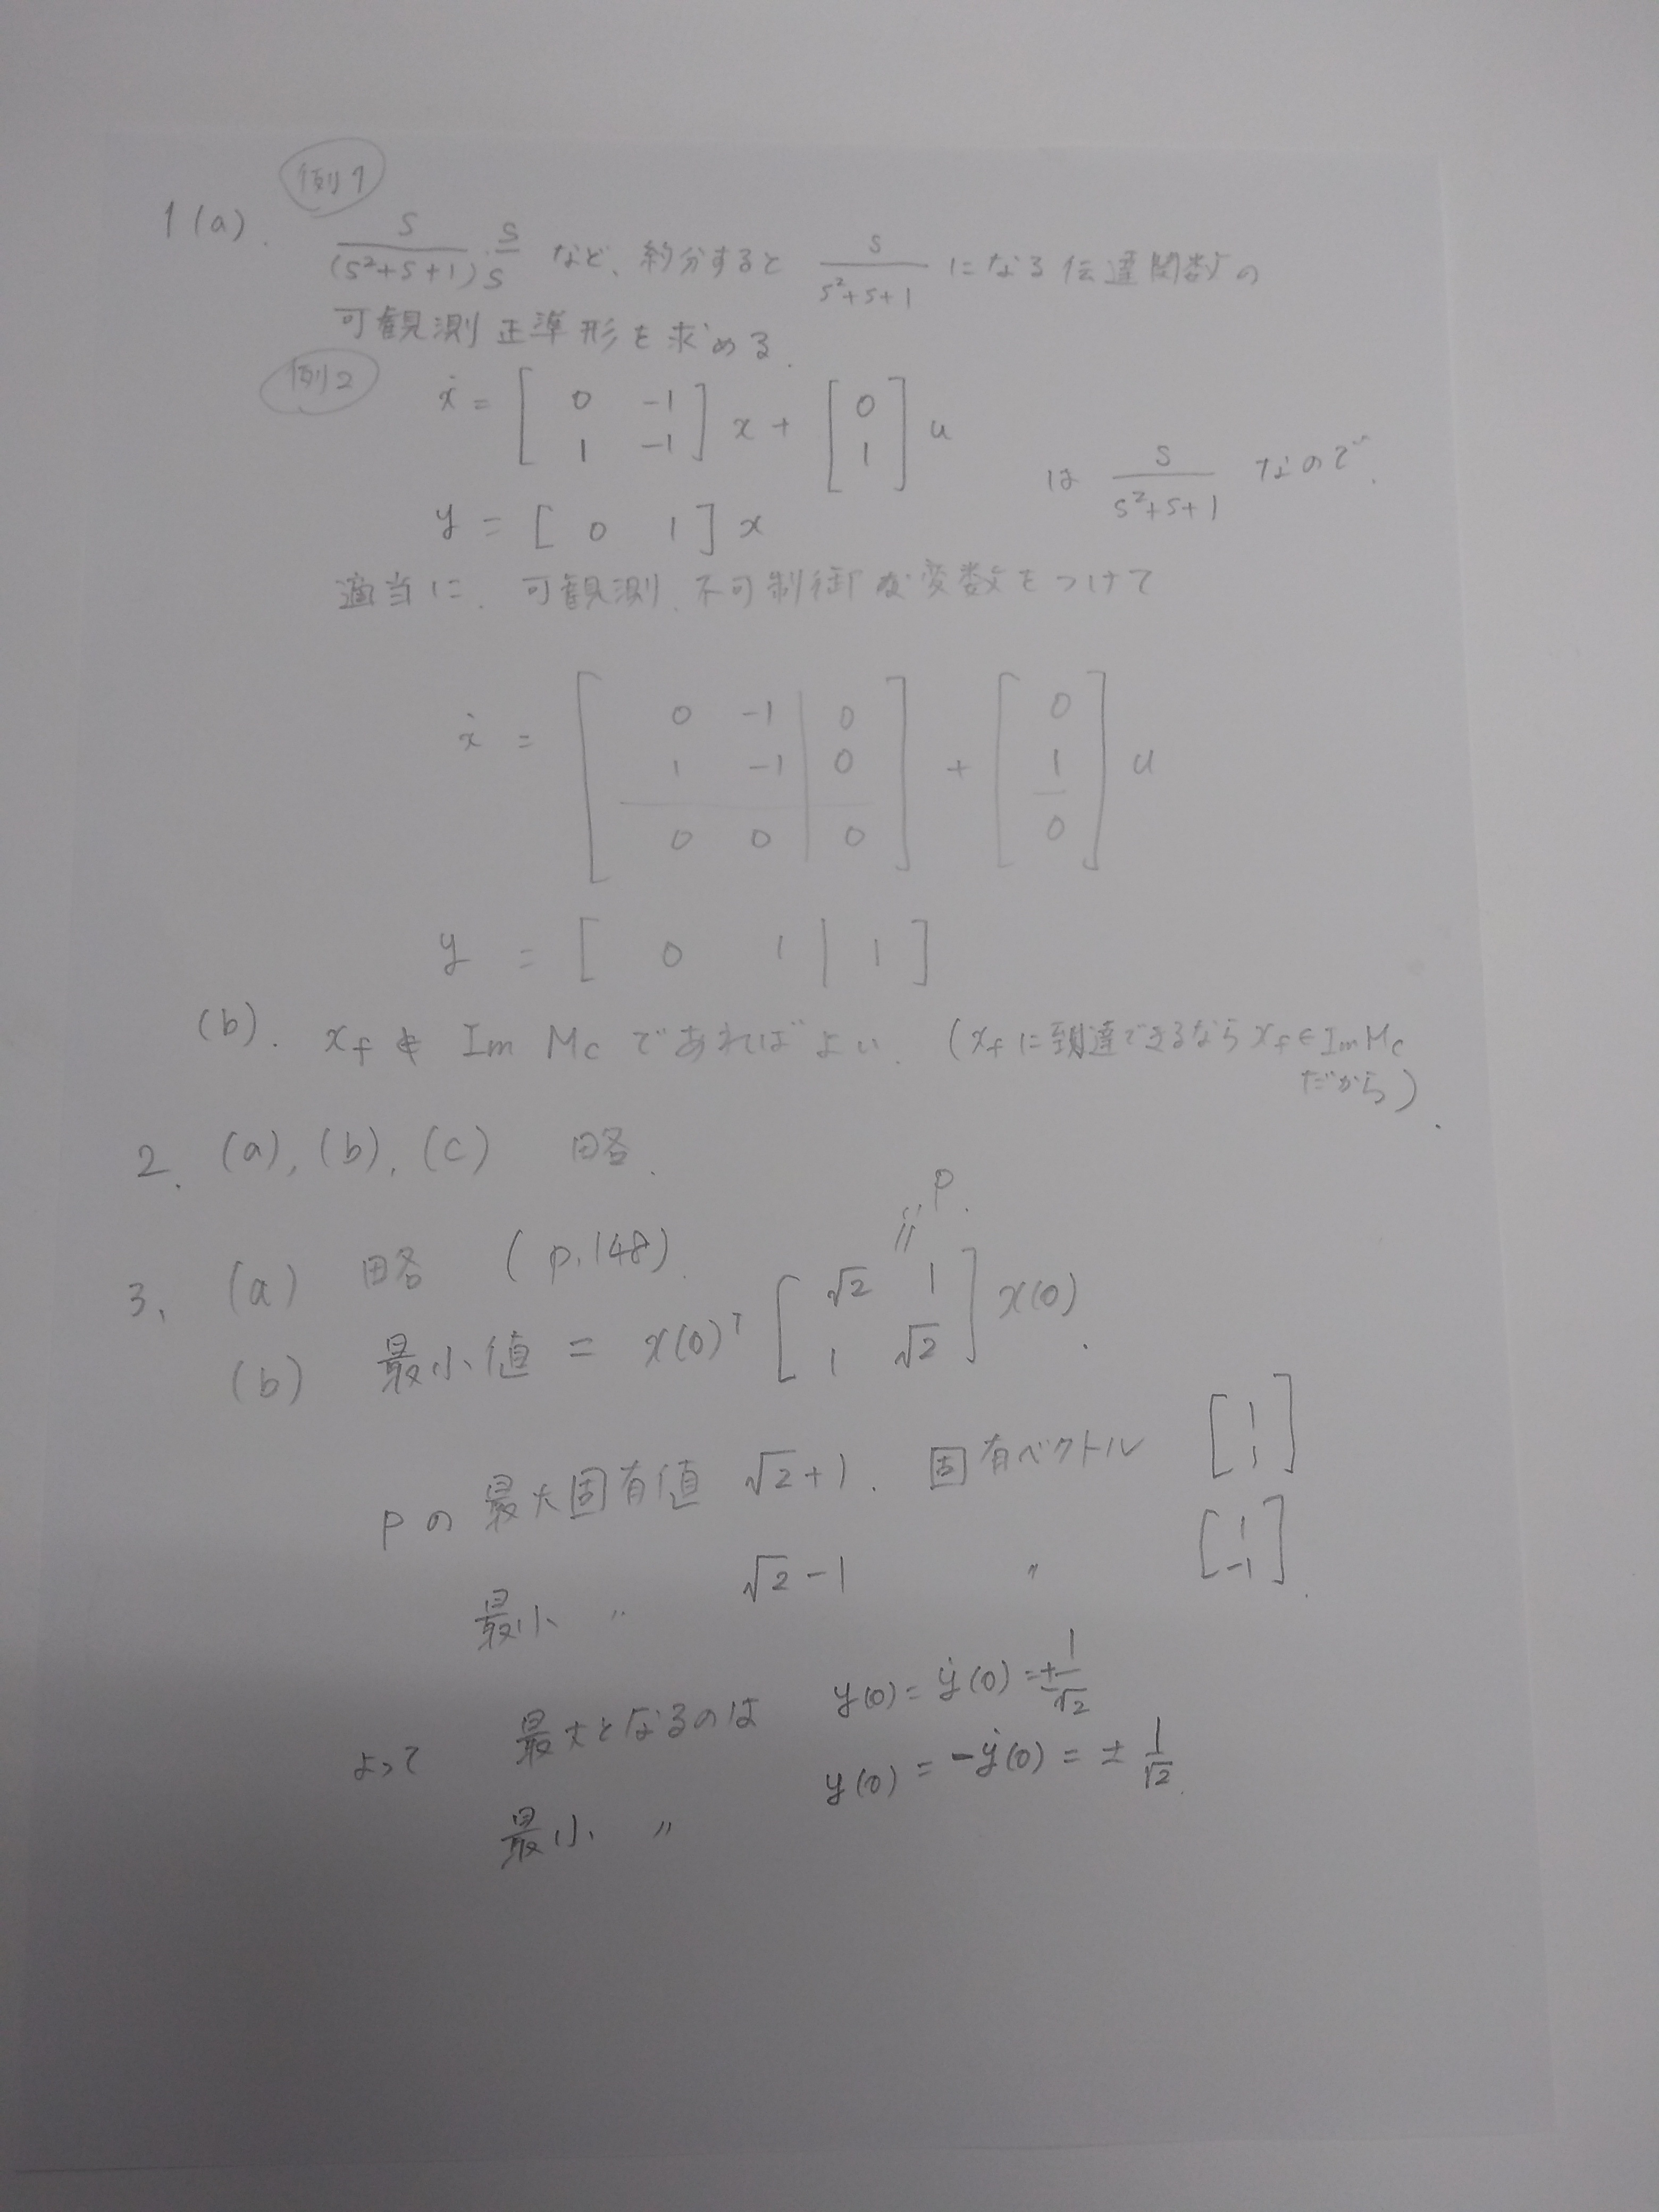 例1
1(a). s/(s²+s+1)・s/s など、約分すると s/(s²+s+1) になる伝達関数の
可観測正準形を求める.
例2
ẋ = [0 -1; 1 -1] x + [0; 1] u
y = [0 1] x は s/(s²+s+1) なので.
適当に、可観測、不可制御な変数をつけて
ẋ = [0 -1 | 0; 1 -1 | 0; 0 0 | 0] + [0; 1; 0] u
y = [0 1 | 1]
(b). x_f ∉ Im Mc であればよい. (x_f に到達できるなら x_f ∈ Im Mc
だから).
2. (a), (b), (c) 略.
3. (a) 略 (p.148).
=: P.
(b) 最小値 = x(0)ᵀ [√2 1; 1 √2] x(0).
Pの 最大固有値 √2+1. 固有ベクトル [1; 1]
最小 〃 √2-1 〃 [1; -1].
よって 最大となるのは y(0) = ẏ(0) = ±1/√2
最小 〃 y(0) = -ẏ(0) = ±1/√2.